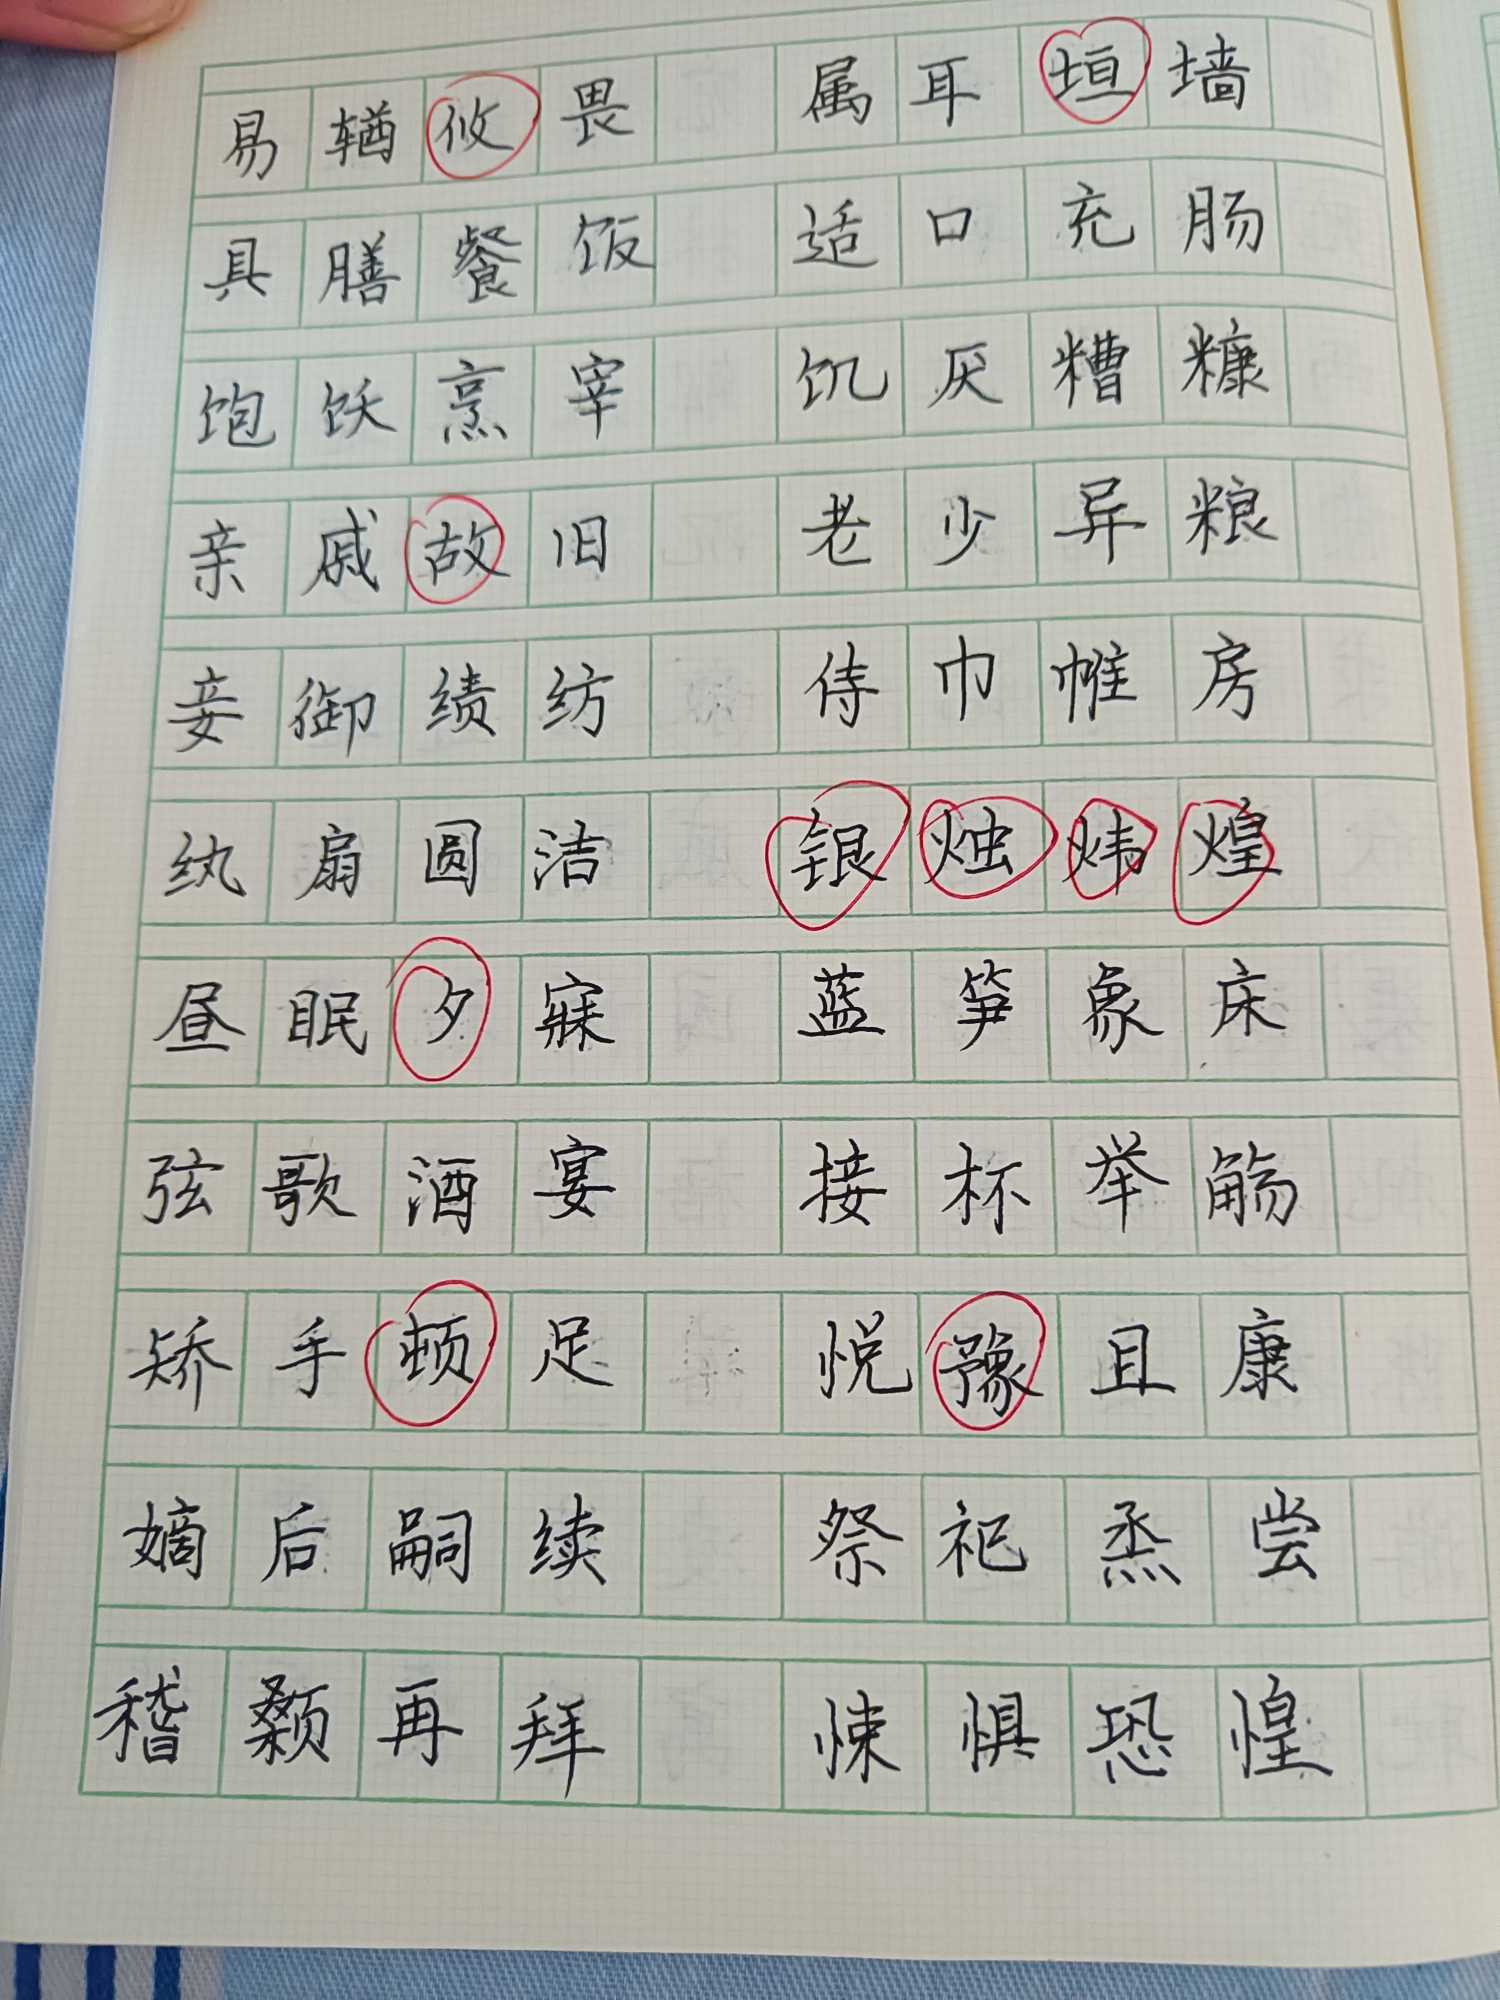 易輶攸畏 属耳垣墙
具膳餐饭 适口充肠
饱饫烹宰 饥厌糟糠
亲戚故旧 老少异粮
妾御绩纺 侍巾帷房
纨扇圆洁 银烛炜煌
昼眠夕寐 蓝笋象床
弦歌酒宴 接杯举觞
矫手顿足 悦豫且康
嫡后嗣续 祭祀烝尝
稽颡再拜 悚惧恐惶